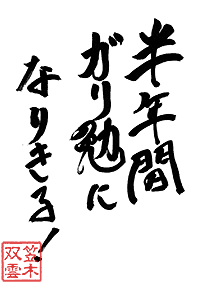 半年間
ガリ勉に
なりきる!
笠木
双雲